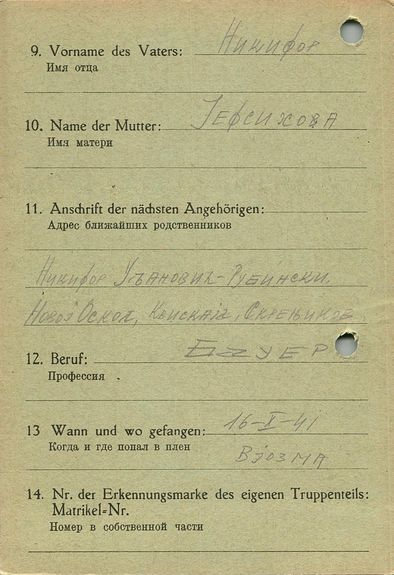 9. Vorname des Vaters: Никифор
Имя отца
10. Name der Mutter:
Имя матери
11. Anschrift der nächsten Angehörigen:
Адрес ближайших родственников
Никифор Рубински
Новој Оскол,
12. Beruf: Бауер
Профессия
13 Wann und wo gefangen: 16-X-41
Когда и где попал в плен
Вјозма
14. Nr. der Erkennungsmarke des eigenen Truppenteils:
Matrikel=Nr.
Номер в собственной части